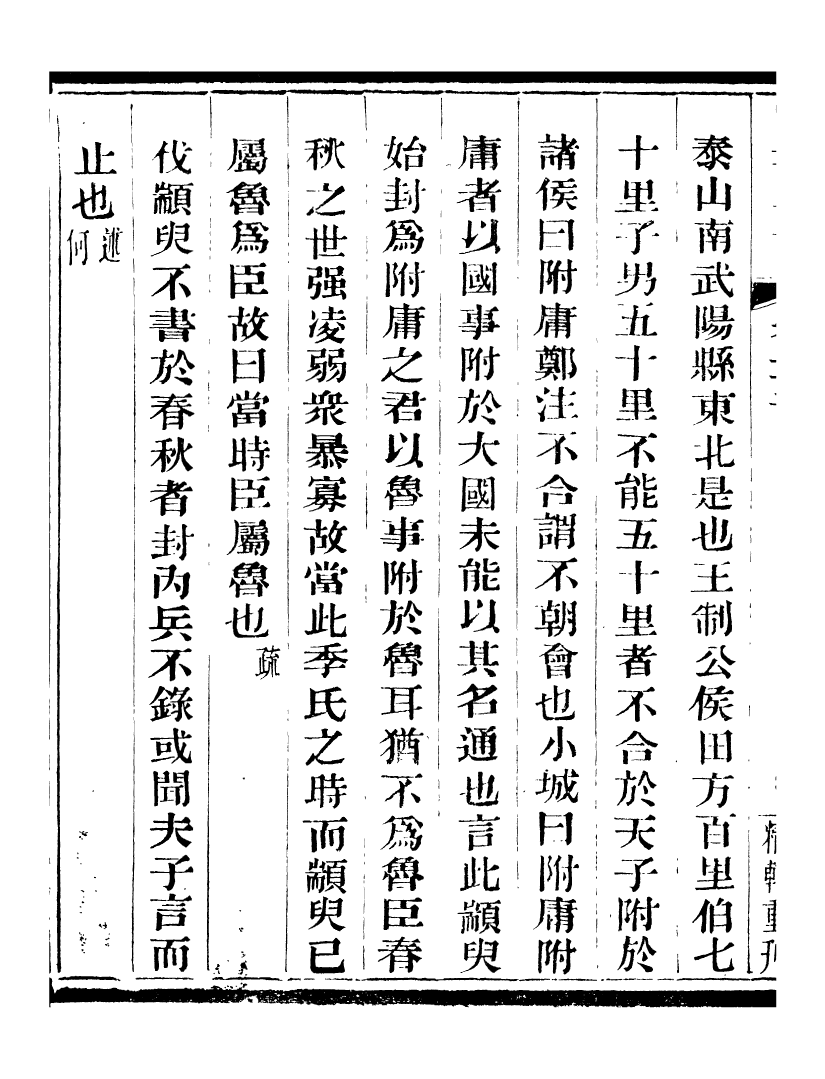 泰山南武陽縣東北是也王制公侯田方百里伯七
十里子男五十里不能五十里者不合於天子附於
諸侯曰附庸鄭注不合謂不朝會也小城曰附庸附
庸者以國事附於大國未能以其名通也言此顓臾
始封爲附庸之君以魯事附於魯耳猶不爲魯臣春
秋之世强凌弱衆暴寡故當此季氏之時而顓臾已
屬魯爲臣故曰當時臣屬魯也疏
伐顓臾不書於春秋者封內兵不錄或聞夫子言而
止也述何